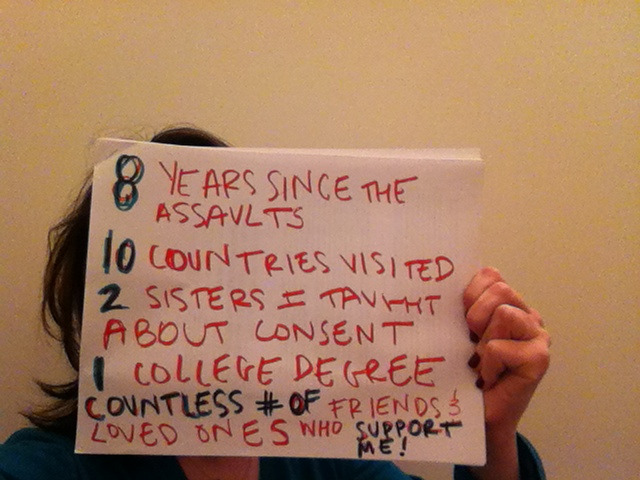 8 YEARS SINCE THE
ASSAULTS
10 COUNTRIES VISITED
2 SISTERS I TAUGHT
ABOUT CONSENT
1 COLLEGE DEGREE
COUNTLESS # OF FRIENDS &
LOVED ONES WHO SUPPORT
ME!